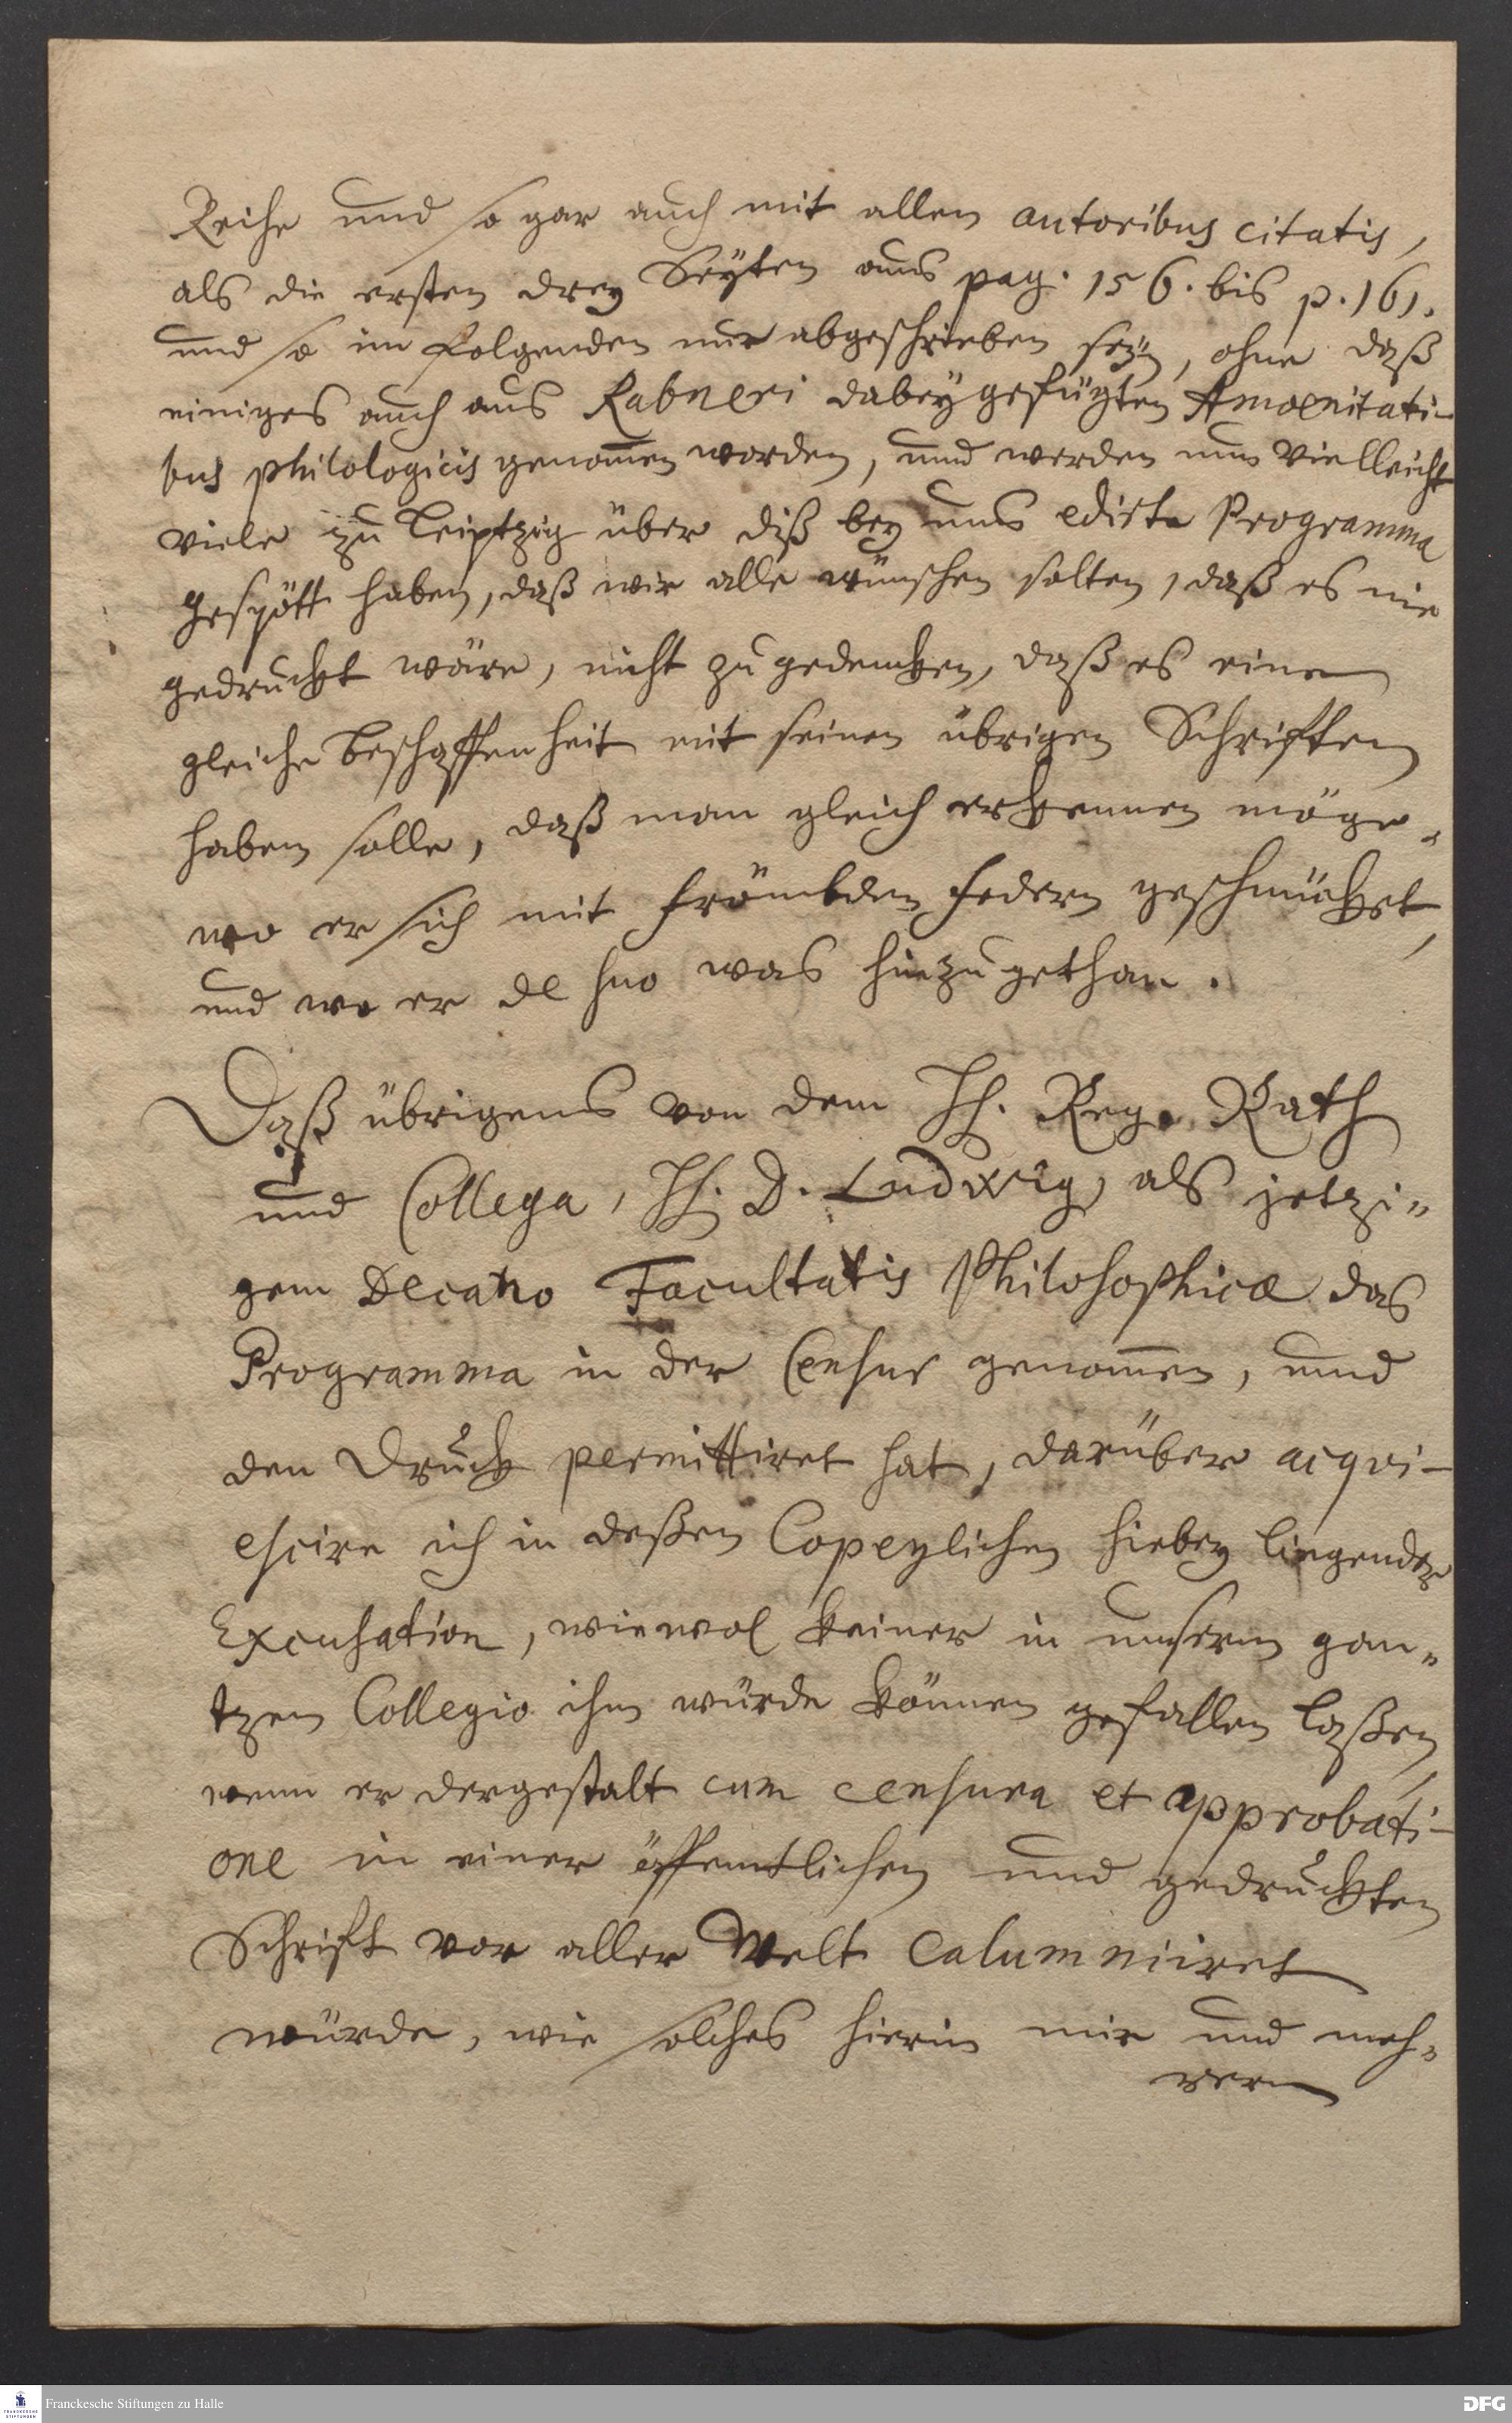 Reihe und so gar auch mit allen autoribus citatis,
als die ersten drey Seyten aus pag. 156. bis p. 161.
und so im folgenden nur abgeschrieben seyn, ohne daß
einiges auch aus Rabneri dabey gefügten Amoenitati-
bus philologicis genom̄en worden, und werden nun vielleicht
viele zu Leiptzig über diß bey uns edirte Programma
Gespött haben, daß wir alle wünschen solten, daß es nie
gedruckt wäre, nicht zu gedencken, daß es eine
gleiche Beschaffenheit mit seinen übrigen Schrifften
haben solle, daß man gleich erkennen möge,
wo er sich mit frömbden Federn geschmücket,
und wo er de suo was hinzu gethan.
Daß übrigens von dem Hh. Reg. Rath
und Collega, Hh. D. Ludwig, als jetzi„
gem Decano Facultatis Philosophicæ das
Programma in der Censur genom̄en, und
den Druck permittiret hat, darüber acqvi-
escire ich in deßen Copeylichen hiebey liegender
Excusation, wiewol keiner in unserm gan„
tzen Collegio ihm würde können gefallen laßen,
wenn er dergestalt cum censura et approbati-
one in einer öffentlichen und gedruckten
Schrifft vor aller Welt calumniiret
würde, wie solches hierin mir und meh„
rern
Franckesche Stiftungen zu Halle
DFG